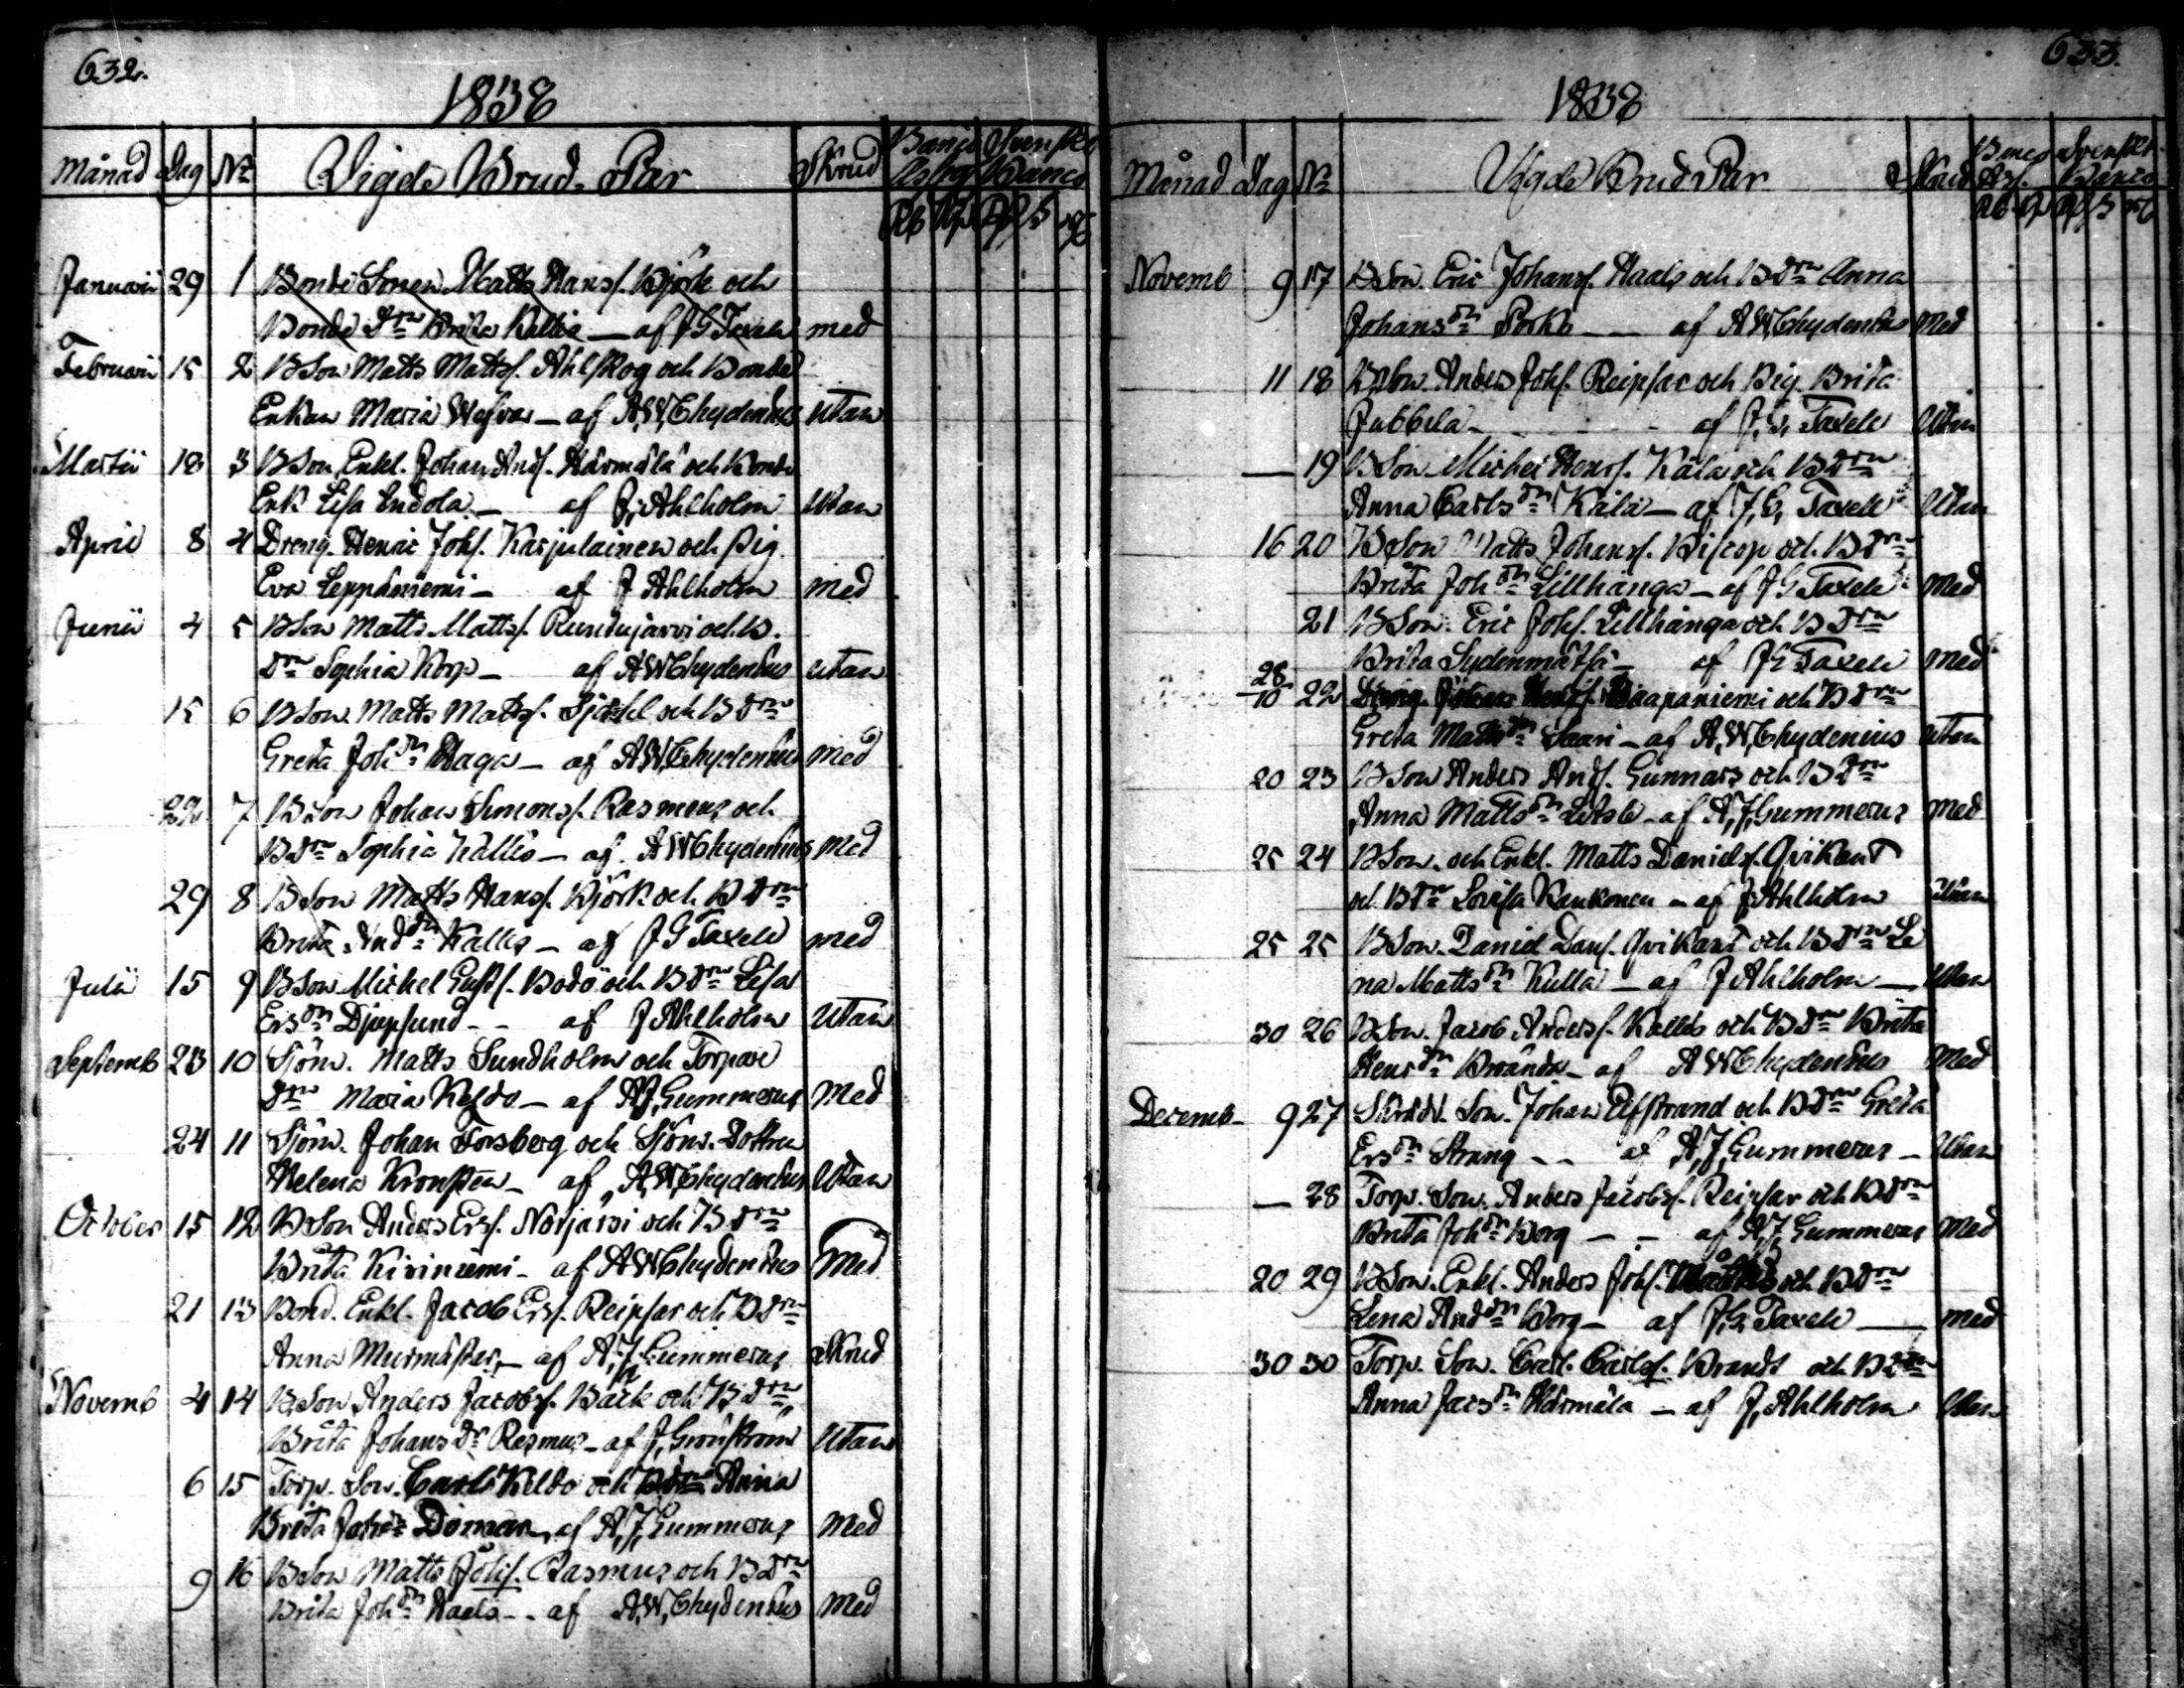 632.
1838
Månad Dag No Vigde Brud-Par Skrud Banco Assg Svenska Banco
Januarii 29 1 Bonde Sonen Matts Hanss. Björk och
Bonde Drn Brita Kallis — af JG Taxell med
Februarii 15 2 BSon Matts Mattss. Ahlskog och Bonde
Enkan Maria — af A,W,Chydenius utan
Martii 18 3 BSon Enkl. Johan Ands. Härmälä och Bonde
Enk Lisa Indola — af J, Ahlholm Utan
April 8 4 Dreng. Henric Johs. Karjulainen och pig.
Eva Leppäniemi — af J Ahlholm med
Junii 4 5 BSon Matts Mattss. Runtujärvi och B.
Drn Sophia Korp — af AWChydenius utan
15 6 BSon. Matts Mattss. och B Drn
Greta Johdr Haga — af A,W,Chydenius med
22 7 BSon Johan Simonss. Rasmus och
BDrn Sophia Kallis — af AWChydenius med
29 8 BSon Matts Hanss. Björk och B Drn
Brita Anddr Kallis — af J G Taxell med
Julii 15 9 BSon Michel Gusts. Bodö och B Drn Lisa
Ersdr Djupsund - - af J Ahlholm Utan
Septemb 23 10 Sjöm. Matts Sundholm och Torpare
Drn Maria Keldo — af A,J,Gummerus Med
24 11 Sjöm. Johan Forsberg och Sjöm. Dottren
Helena Kronsten — af A,W,Chydenius Utan
October 15 12 BSon Anders Erss. Norjärvi och B Drn
Brita Kiriniemi - af AWChydenius med
21 13 Bond. Enkl. Jacob Erss. Reipsar och B Drn
Anna Murmästar, — af A,J, Gummerus Skrud
Novemb 4 14 B,Son Anders Jacobss. Back och B Drn
Brita Johans dr Rasmus — af J, Grönström Utan
6 15 Torp. Son. Carl Keldo och Anna
Brita Doman, af A,J,Gummerus Med
9 16 BSon Matts Johs. Rasmus och B Drn
Brita Johdr Haals - - af A,W,Chydenius Med
633.
1838
Månad Dag No Vigde Brud Par Skrud Banco Ass. Svenskt Banco
Novemb 9 17 BSon. Eric Johanss. Haals och B Drn Anna
Johansdr Pörkb — af A W Chydenius Med
11 18 BSon. Anders Johs. Reipsar och Pig. Brita
Jubbila - - - af J,G, Taxell Utan
— 19 BSon Michel Henrs. Kåla och B Drn
Anna Carlsdr Kåla — af, J,G, Taxell Utan
16 20 BSon Matts Johanss. Biscop och B Drn
Brita Johdr Lillhånga — af J G Taxell Med
21 BSon. Eric Johs. Lillhånga och B Drn
Brita Sydenmätsä — af JG Taxell med
28
10 22 Dreng. Johan Henrs. Haapaniemi och B Drn
Greta Mattsdr Saari — af A,W,Chydenius utan
20 23 BSon Anders Ands. Gunnars och B Drn
Anna Mattsdr — af A,J,Gummerus Med
25 24 BSon. och Enkl. Matts Daniels. Qvikant
och B Drn Lovisa Kaukonen — af J Ahlholm Utan
25 25 BSon. Daniel Dans. Qvikant och B Drn Le
na Mattsdr Kulla — af J Ahlholm — Utan
30 26 BSon. Jacob Anderss. Kallis och B Drn Brita
Henrdr Brända — af A W Chydenius Med
Decemb- 9 27 Skrädd. Son. Johan Elfstrand och B Drn Greta
Ersdr Strang - - af A,J,Gummerus — Utan
— 28 Torp. Son. Anders Jacobss. Reipsar och B Drn
Brita Johdr Borg — - af A,J, Gummerus Med
20 29 BSon. Enkl. Anders Johs. och B Drn
Lena Anddr Borg — af J,G, Taxell — med
30 30 Torp. Son. Carl. Carlss. Brandt och B Drn
Anna Jacsdr Härmälä — af J, Ahlholm Utan